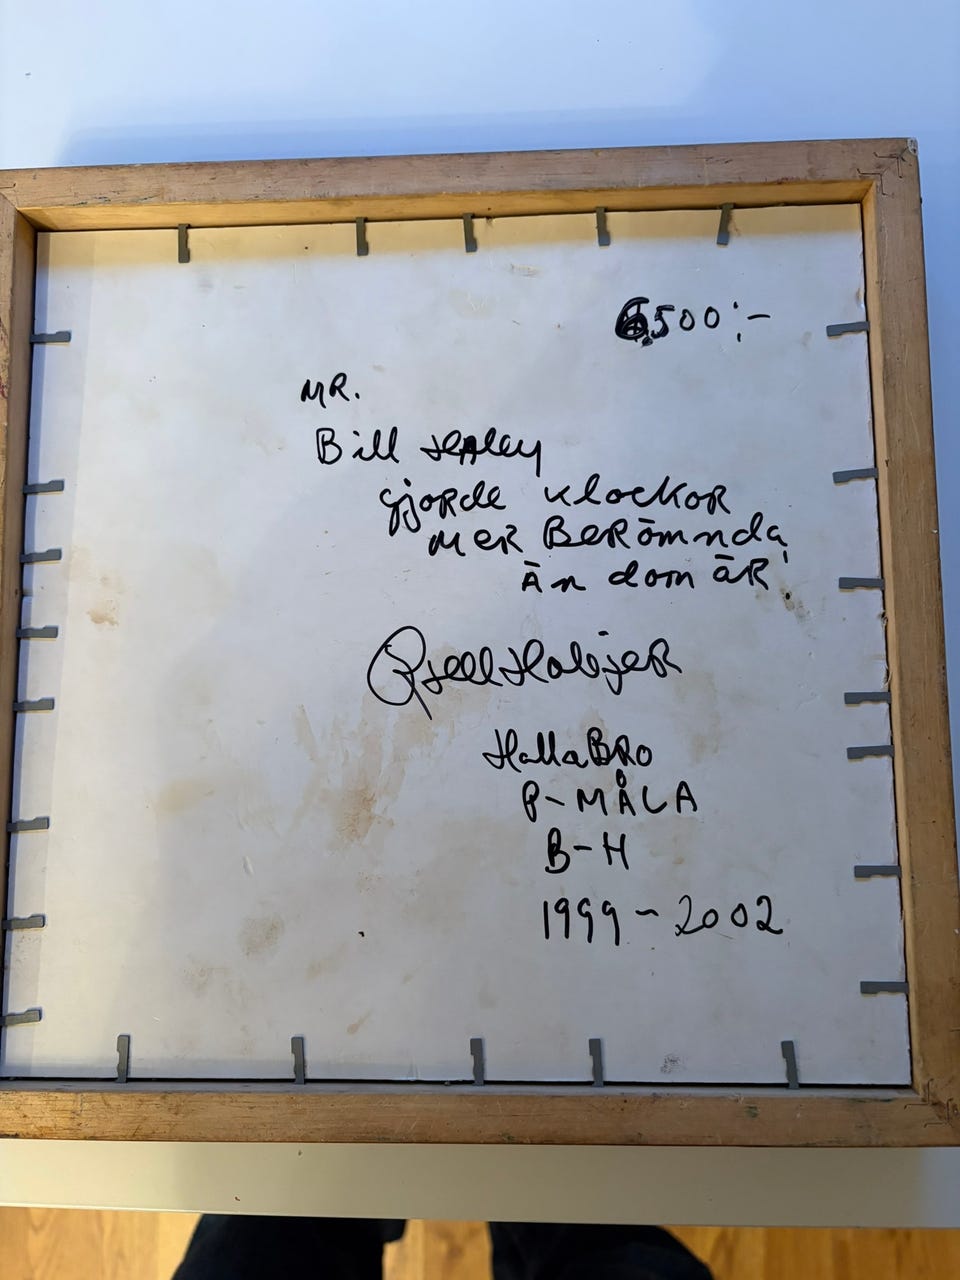 6.500:-
MR.
Bill HAley
gjorde klockor
mer Berömnda
Än dom är!
Kjell Hobjer
HallaBRO
P-MÅLA
B-H
1999-2002